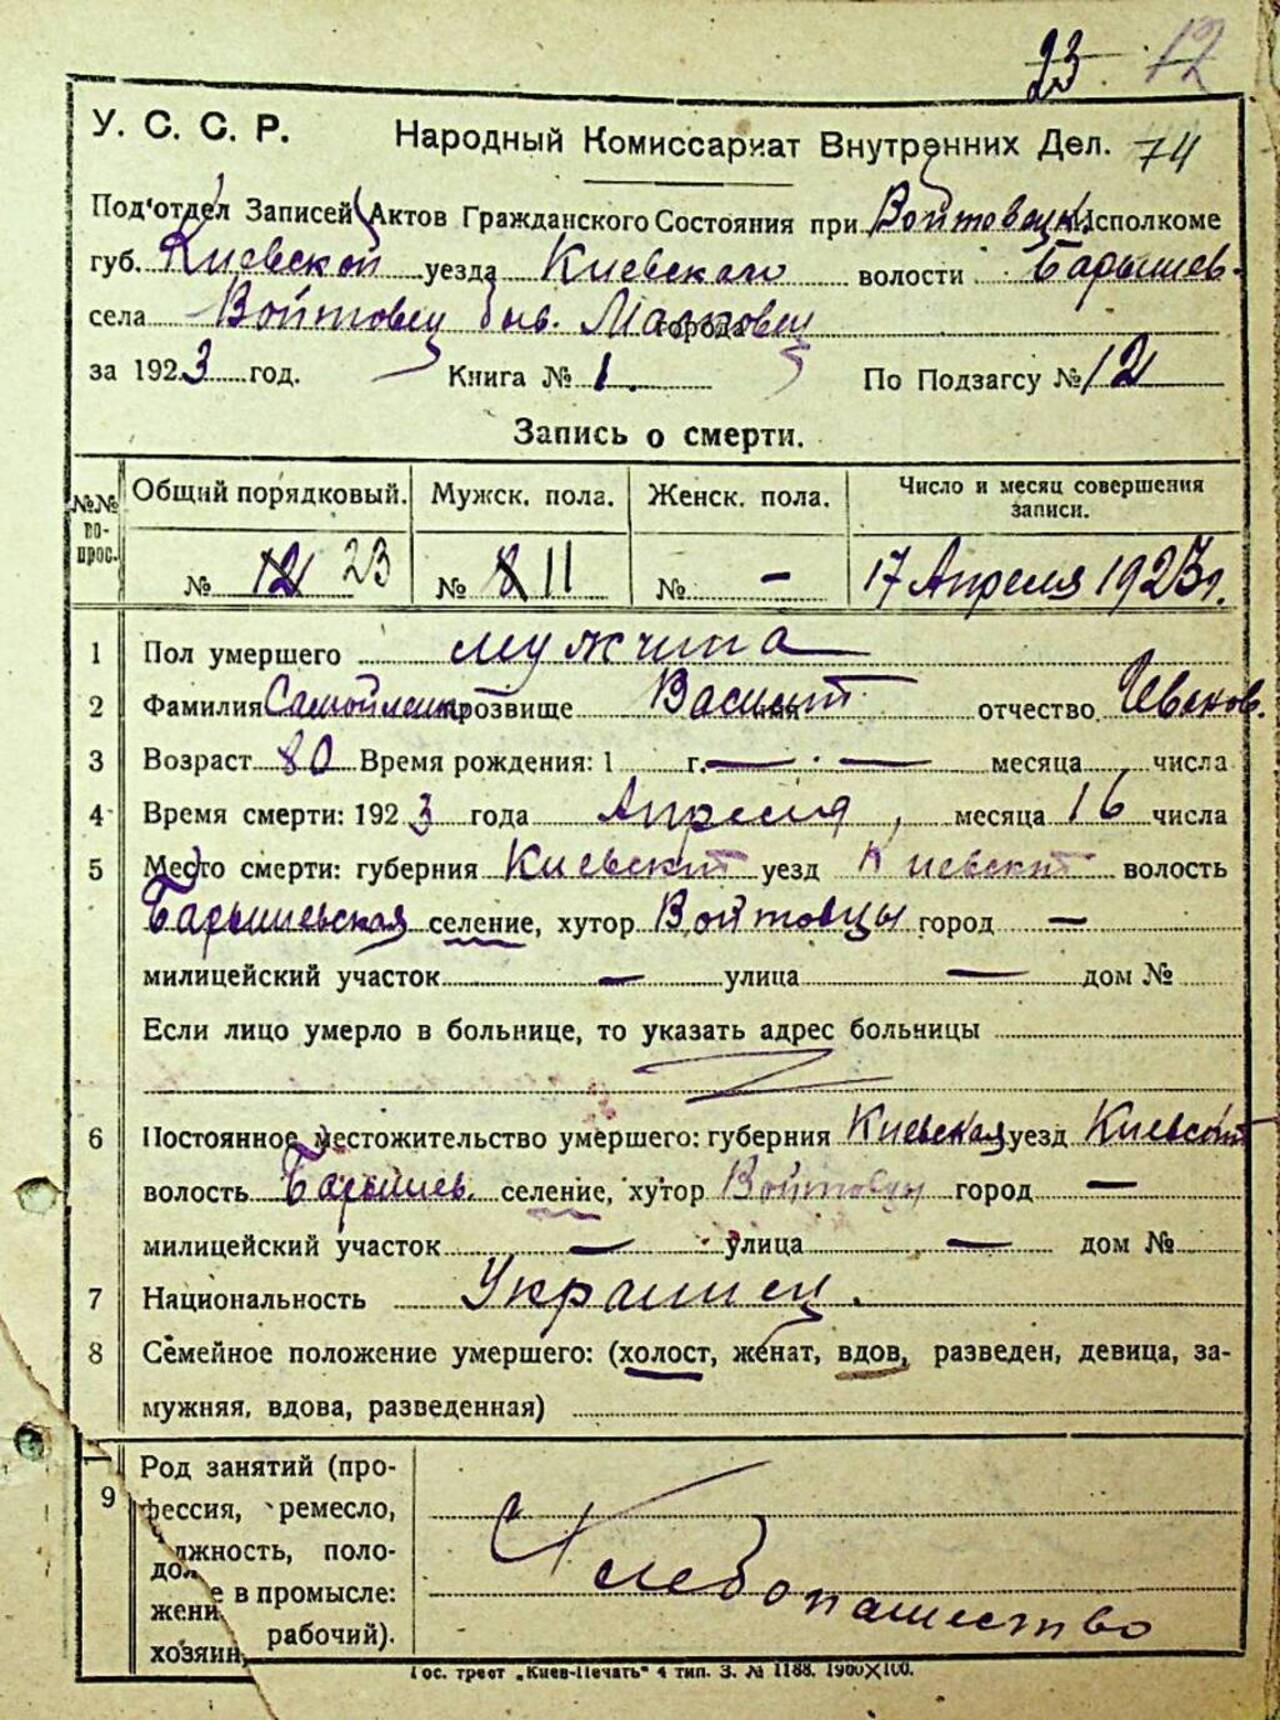 23. 12
У. С. С. Р. Народный Комиссариат Внутренних Дел. 74
Под'отдел Записей Актов Гражданского Состояния при Войтовецк. Исполкоме
губ. Киевской уезда Киевского волости Барышев.
села Войтовец быв. города
за 1923 год. Книга № 1. По Подзагсу № 12
Запись о смерти.
№№ вопрос. Общий порядковый. Мужск. пола. Женск. пола. Число и месяц совершения записи.
№ 12 23 № 8 11 № – 17 Апреля 1923г.
1 Пол умершего мужчина
2 Фамилия Самойленко прозвище имя Васил отчество
3 Возраст 80 Время рождения: 1 г. — — месяца числа
4 Время смерти: 1923 года Апреля, месяца 16 числа
5 Место смерти: губерния Киевская уезд Киевский волость
Барышевская селение, хутор Войтовцы город —
милицейский участок — улица — дом №
Если лицо умерло в больнице, то указать адрес больницы
6 Постоянное местожительство умершего: губерния Киевская уезд Киевский
волость Барышев. селение, хутор Войтовцы город —
милицейский участок — улица — дом №
7 Национальность Украинец.
8 Семейное положение умершего: (холост, женат, вдов, разведен, девица, за-
мужняя, вдова, разведенная)
9 Род занятий (про-
фессия, ремесло,
должность, поло-
жение в промысле:
хозяин, рабочий).
Хлебопашество
Гос. трест „Киев-Печать" 4 тип. З. № 1188. 1900X100.